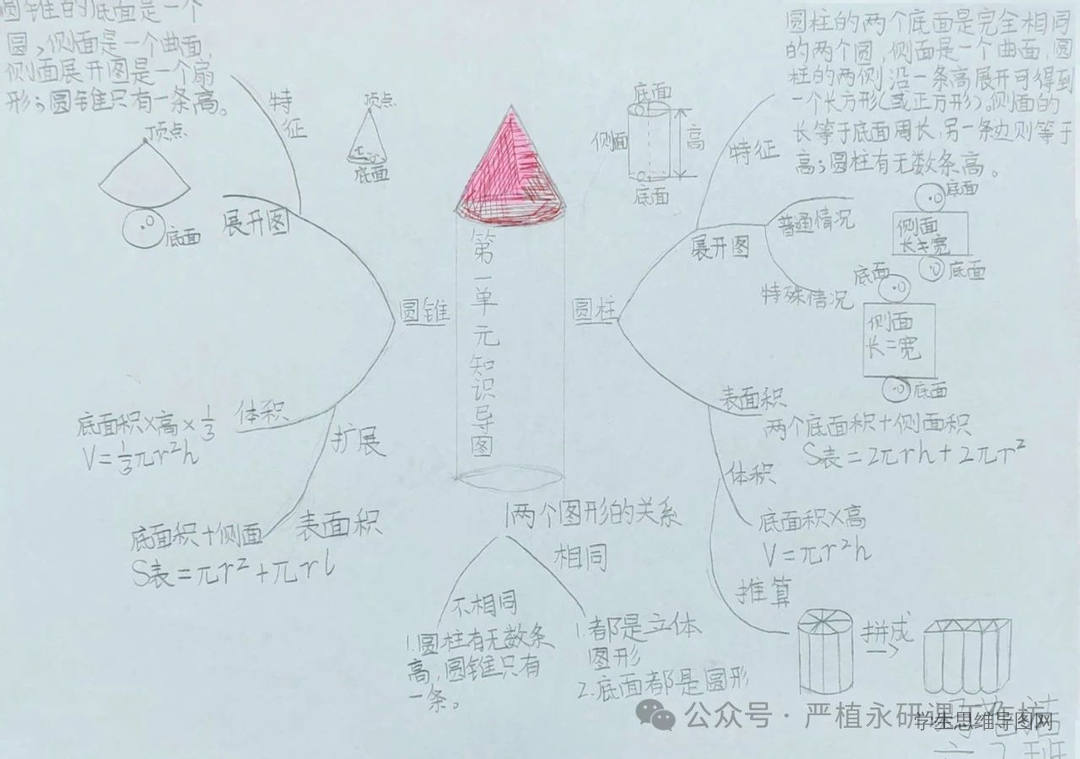 圆锥的底面是一个
圆,侧面是一个曲面,
侧面展开图是一个扇
形;圆锥只有一条高。
特征
顶点
底面
展开图
顶点
底面
圆锥
体积
底面积×高×1/3
V=1/3πr²h
扩展
表面积
底面积+侧面
S表=πr²+πrl
第一单元知识导图
圆柱的两个底面是完全相同
的两个圆,侧面是一个曲面,圆
柱的两侧沿一条高展开可得到
一个长方形(或正方形)。侧面的
长等于底面周长,另一条边则等于
高;圆柱有无数条高。
特征
底面
侧面
高
底面
圆柱
展开图
普通情况
底面
侧面
长≠宽
底面
特殊情况
底面
侧面
长=宽
底面
表面积
两个底面积+侧面积
S表=2πrh+2πr²
体积
底面积×高
V=πr²h
推算
拼成
两个图形的关系
不相同
1.圆柱有无数条
高,圆锥只有
一条。
相同
1.都是立体
图形
2.底面都是圆形
公众号·严植永研课工作坊
学生思维导图网